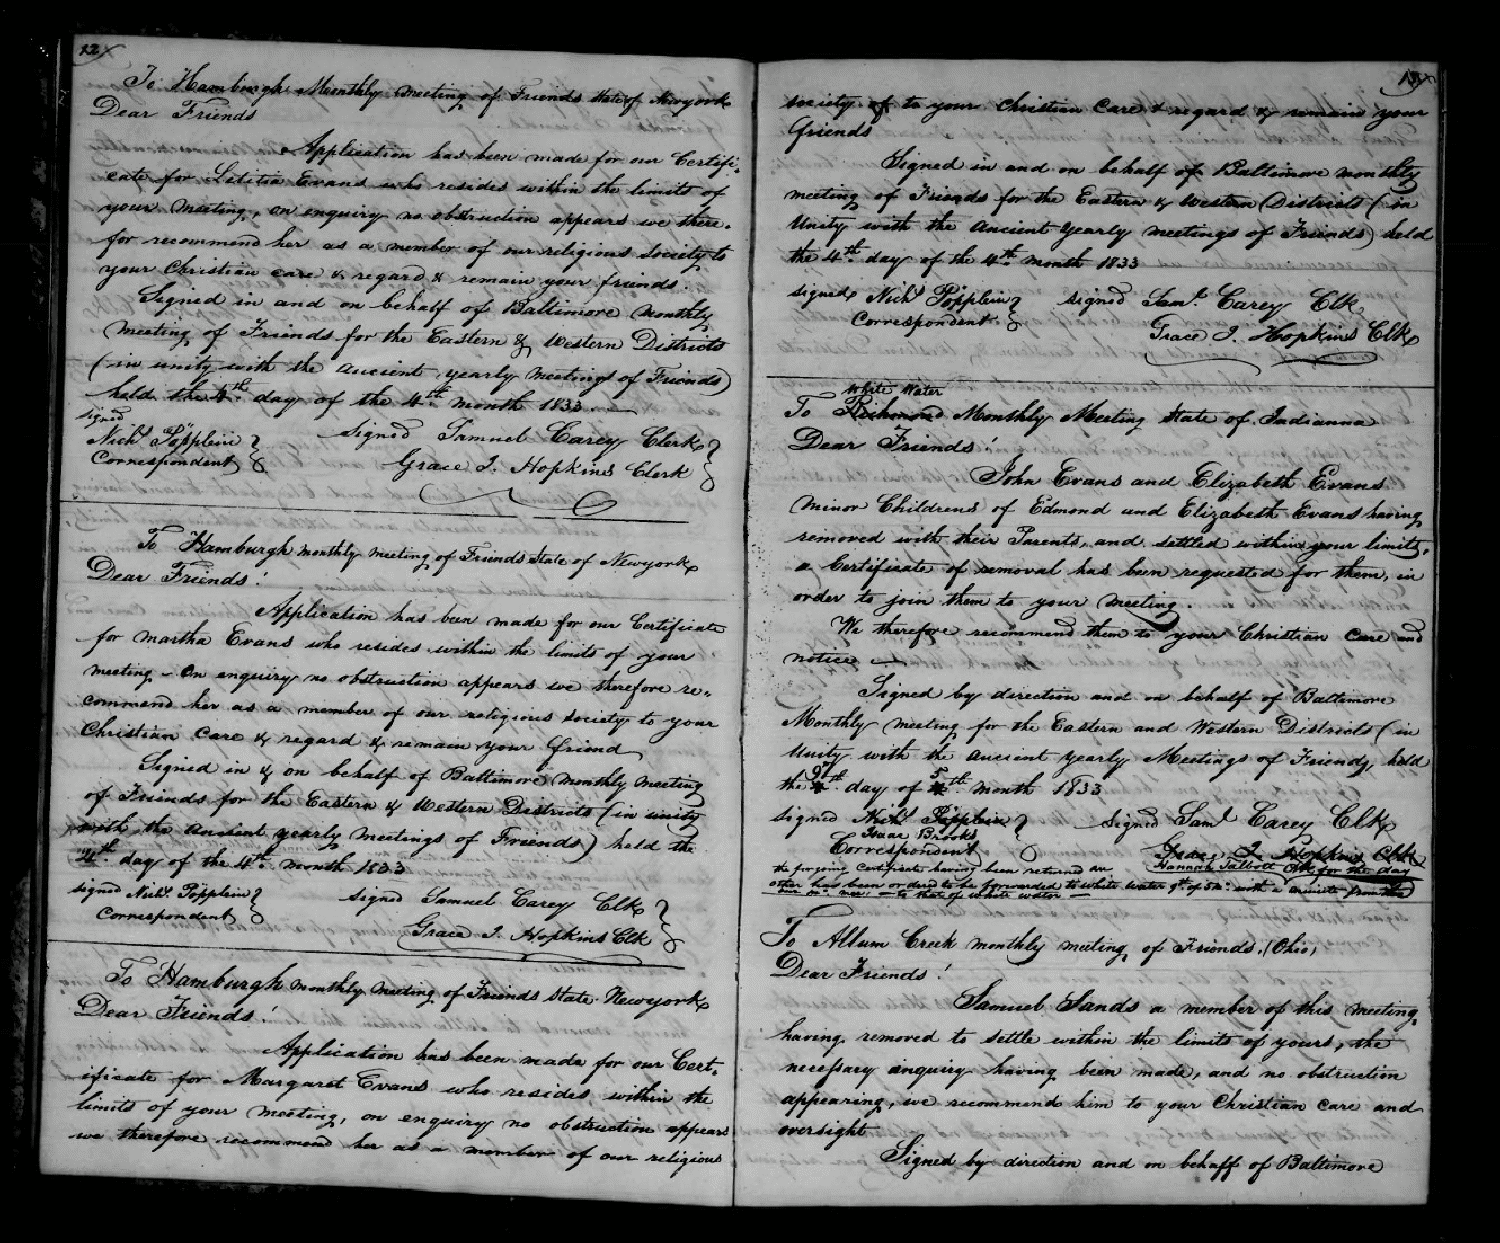 12
To Hamburgh Monthly Meeting of Friends State of Newyork
Dear Friends
Application has been made for our Certifi-
cate for Letitia Evans who resides within the limits of
your Meeting, on enquiry no obstruction appears we there-
for recommend her as a member of our religious Society to
your Christian care & regard & remain your friends.
Signed in and on behalf of Baltimore monthly
Meeting of Friends for the Eastern & Western Districts
(in unity with the ancient yearly Meetings of Friends)
held the 4th day of the 4th month 1833
signed
Nichs Popplein
Correspondent
Signed Samuel Carey Clerk
Grace I. Hopkins Clerk
To Hamburgh monthly meeting of Friends State of Newyork
Dear Friends!
Application has been made for our Certificate
for martha Evans who resides within the limits of your
meeting - on enquiry no obstruction appears we therefore re-
commend her as a member of our religious society to your
Christian Care & regard & remain your friend
Signed in & on behalf of Baltimore monthly meeting
of Friends for the Eastern & Western Districts (in unity
with the ancient yearly meetings of Friends) held the
4th day of the 4th month 1833
signed Nichs Popplein
Correspondent
Signed Samuel Carey Clk
Grace I. Hopkins Clk
To Hamburgh monthly Meeting of Friends State Newyork
Dear Friends!
Application has been made for our Cert-
ificate for Margaret Evans who resides within the
limits of your meeting, on enquiry no obstruction appears
we therefore recommend her as a member of our religious
13
society of to your Christian Care & regard & remain your
friends
Signed in and on behalf of Baltimore monthly
meeting of Friends for the Eastern & Western Districts (in
Unity with the ancient yearly meetings of Friends) held
the 4th day of the 4th month 1833
signed Nichs Popplein
Correspondent
signed Saml. Carey Clk
Grace I. Hopkins Clk
White Water
To Richmond Monthly Meeting State of Indianna
Dear Friends!
John Evans and Elizabeth Evans
minor Childrens of Edmond and Elizabeth Evans having
removed with their Parents, and settled within your limits,
a Certificate of removal has been requested for them, in
order to join them to your Meeting.
We therefore recommend them to your Christian Care and
notice
Signed by direction and on behalf of Baltimore
Monthly meeting for the Eastern and Western Districts (in
Unity with the ancient yearly Meetings of Friends, held
the 9th day of 5th month 1833
signed Nichs Popplein
Isaac Brooks
Correspondent
Signed Saml Carey Clk
Grace I. Hopkins Clk
Hannah Talbott Clk for the day
the forgoing Certificate having been returned an
other has been ordered to be forwarded to White Water 9th of 5mo with a minute from the
to that of white water
To Allum Creek monthly meeting of Friends. (Ohio)
Dear Friends!
Samuel Sands a member of this meeting,
having removed to settle within the limits of yours, the
necessary inquiry having been made, and no obstruction
appearing, we recommend him to your Christian care and
oversight
Signed by direction and on behalf of Baltimore